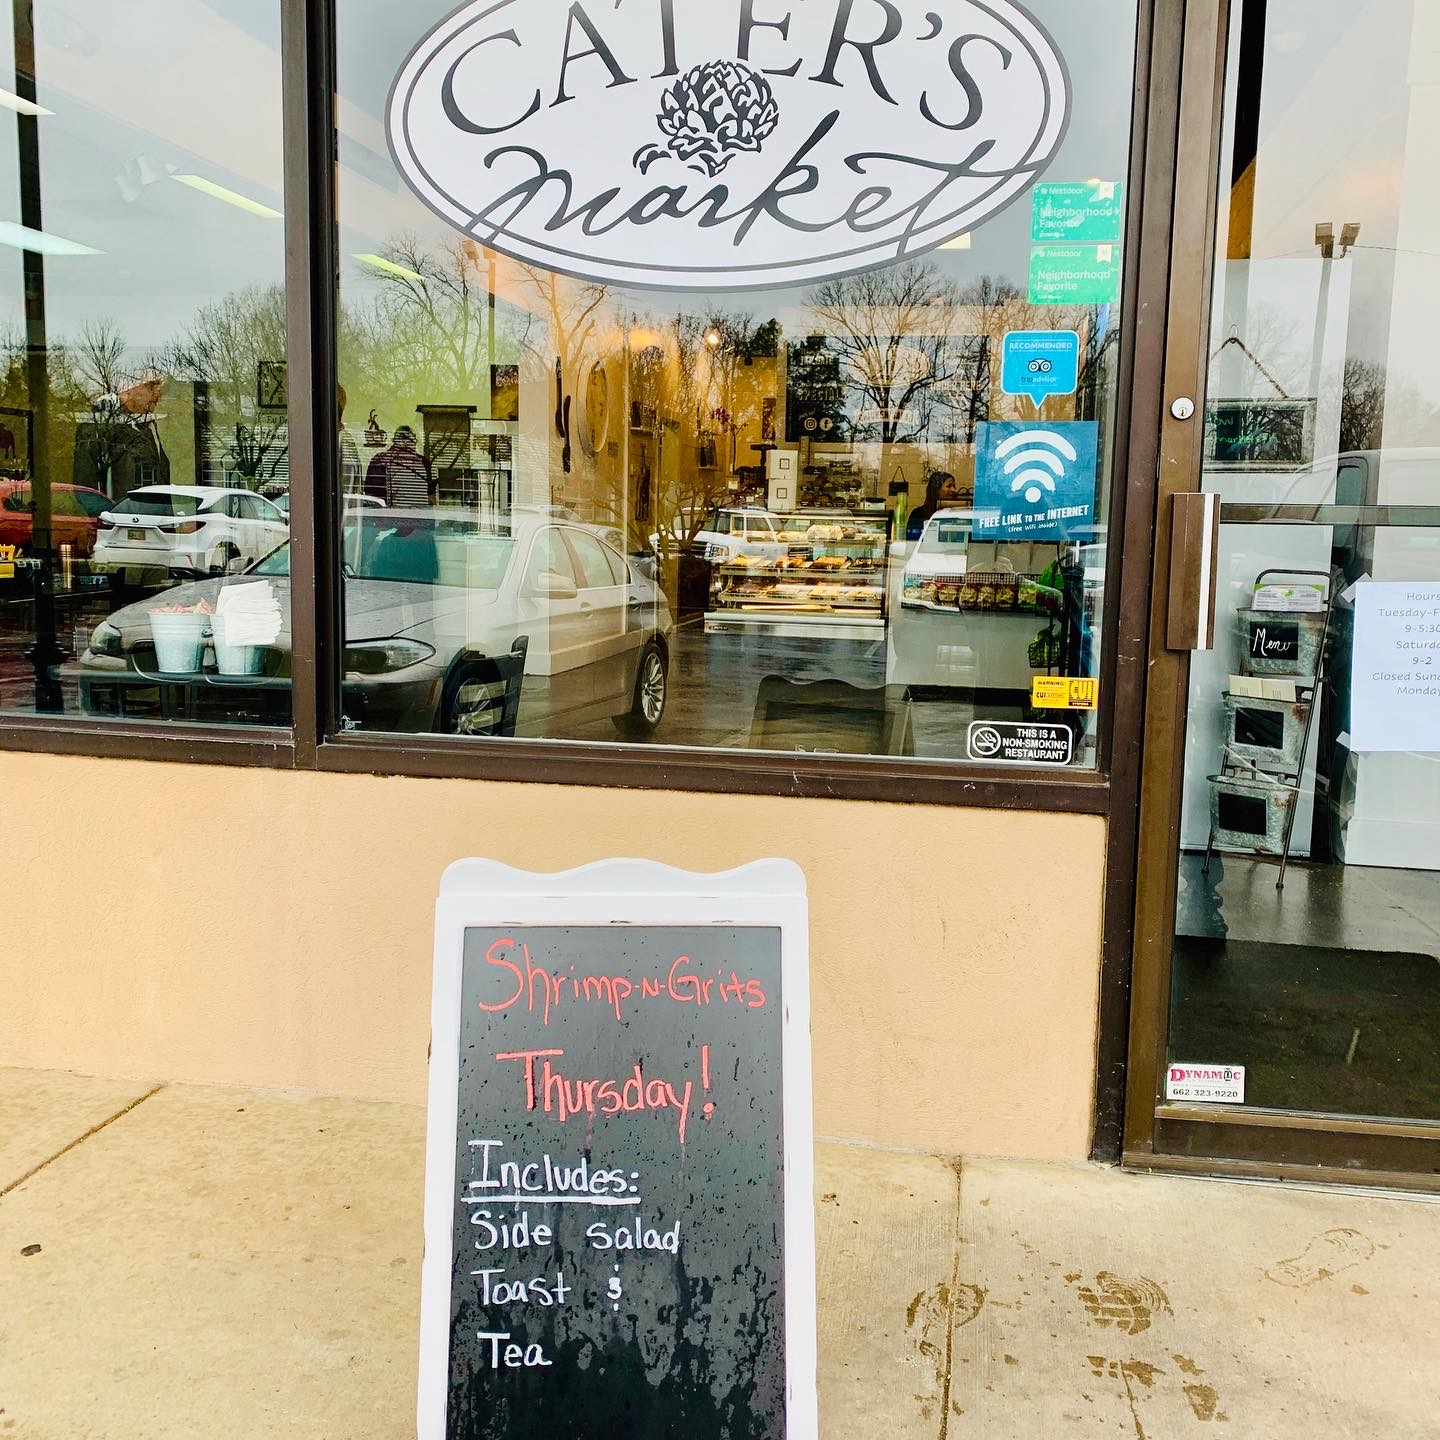 CATER'S
market
Nextdoor
Neighborhood
Favorite
Nextdoor
Neighborhood
Favorite
RECOMMENDED
tripadvisor
FREE LINK TO THE INTERNET
(free WiFi inside)
WARNING
CUI
CUI
SYSTEMS
THIS IS A
NON-SMOKING
RESTAURANT
Menu
Hours
Tuesday-F
9-5:30
Saturda
9-2
Closed Sun
Monday
DYNAMIC
662-323-9220
Shrimp-N-Grits
Thursday!
Includes:
Side salad
Toast &
Tea